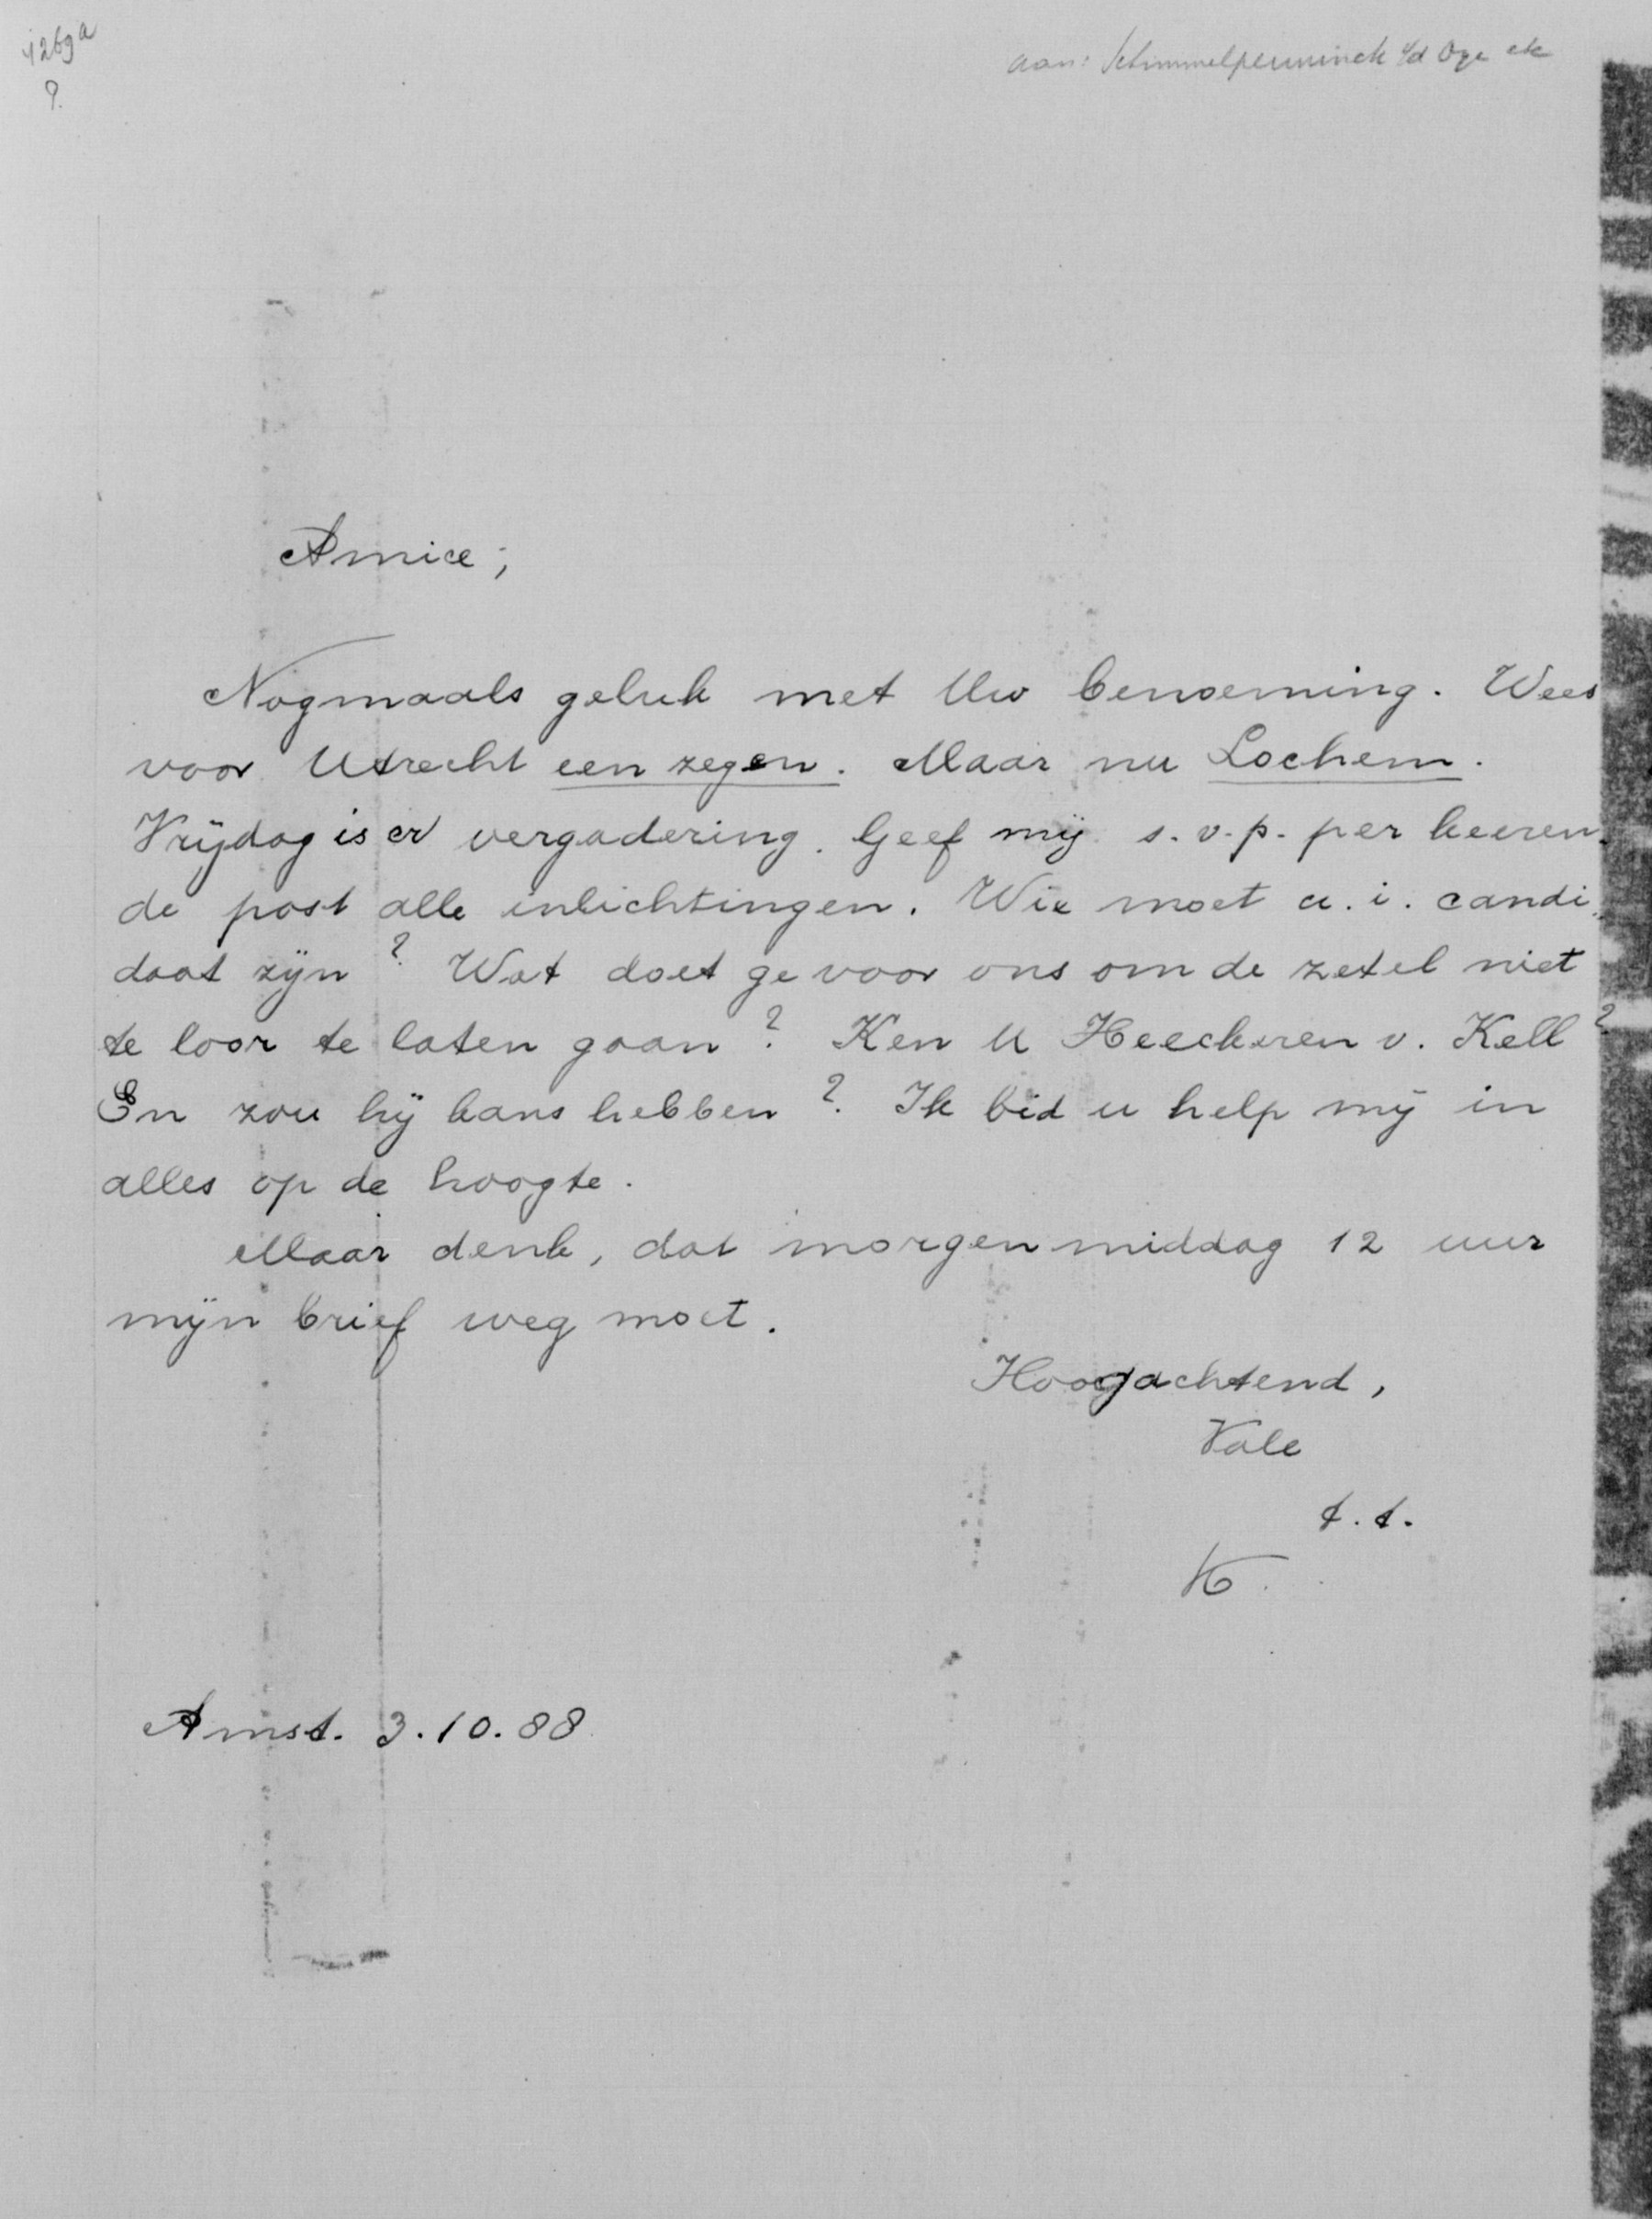 4269a
?
aan: Schimmelpenninck v/d Oye etc
Amice;
Nogmaals geluk met Uw benoeming. Wees
voor Utrecht een zegen. Maar nu Lochem.
Vrijdag is er vergadering. Geef mij s.v.p. per keeren-
de post alle inlichtingen. Wie moet u.i. candi„
daat zijn? Wat doet ge voor ons om de zetel niet
te loor te laten gaan? Ken U Heeckeren v. Kell?
En zou hij kans hebben? Ik bid u help mij in
alles op de hoogte.
Maar denk, dat morgen middag 12 uur
mijn brief weg moet.
Hoogachtend,
Vale
t.t.
K.
Amst. 3.10.88